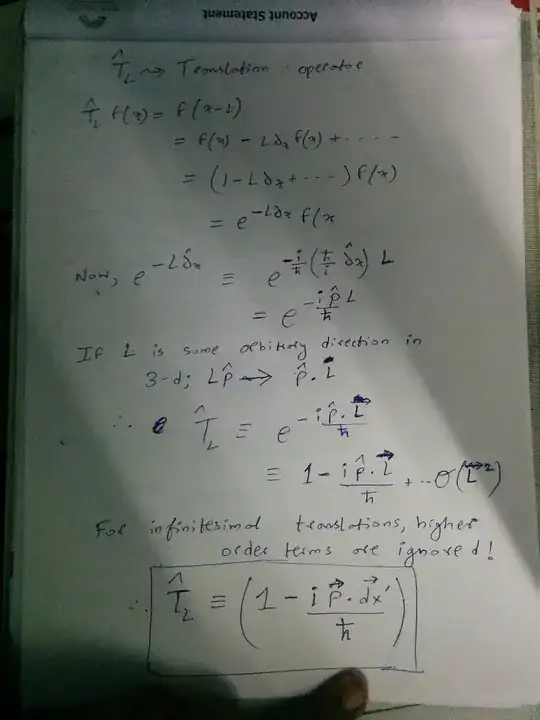 Account Statement
T̂_L ⇝ Translation operator
T̂_L f(x) = f(x-L)
= f(x) - L∂ₓ f(x) + .....
= (1 - L∂ₓ + ...) f(x)
= e^{-L∂ₓ} f(x
Now, e^{-L∂̂ₓ} ≡ e^{-\frac{i}{ħ}(\frac{ħ}{i} ∂̂ₓ) L}
= e^{-\frac{i p̂ L}{ħ}}
If L is some orbitrary direction in
3-d; Lp̂ → p̂.L⃗
∴ T̂_L ≡ e^{-\frac{i p̂.L⃗}{ħ}}
≡ 1 - \frac{i p̂.L⃗}{ħ} + ..O(L⃗²)
For infinitesimal translations, higher
order terms are ignored!
∴ T̂_L ≡ (1 - \frac{i p⃗.dx⃗'}{ħ})